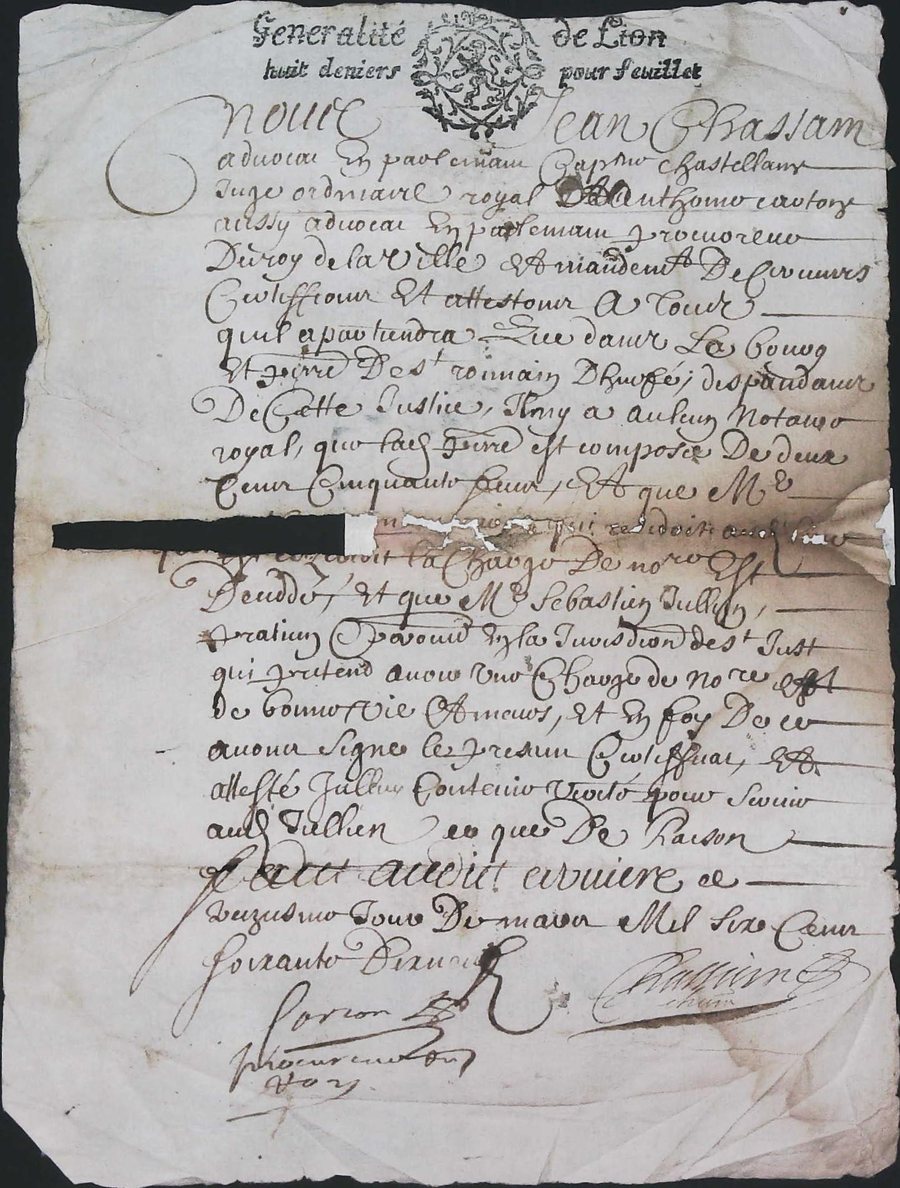 Generalité de Lion
huit deniers pour feuillet
Nous Jean Chassain
advocat En parlement Cappne Chastellain
Juge ordinaire royal Et Anthoine
aussy advocat En parlement procureur
Du roy de la Ville Et mandemt De Cervieres
Certiffions Et attestons A tous
quil apartiendra Que dans Le bourg
Et pnrre De st romain Dhurfé, despandant
De Cette Justice, Il ny a aulcun Notaire
royal, que lad pnrre est composée De deux
Cens Cinquante feux, Et que Me
qui residoit aud lieu
la Charge De nore Est
Decddé, Et que Me Sebastien Jullien,
praticien En la Jurisdiond de st Just
qui pretend avoir Une Charge de Nore est
de bonne Vie Et meurs, Et En foy De ce
avons signe le present Certifficat, Et
attesté Contenir Verité pour servir
aud Jullien ce que De Raison
faict audict cerviere ce
Jour De mars Mil Six Cens
soixante
procureur du
roy